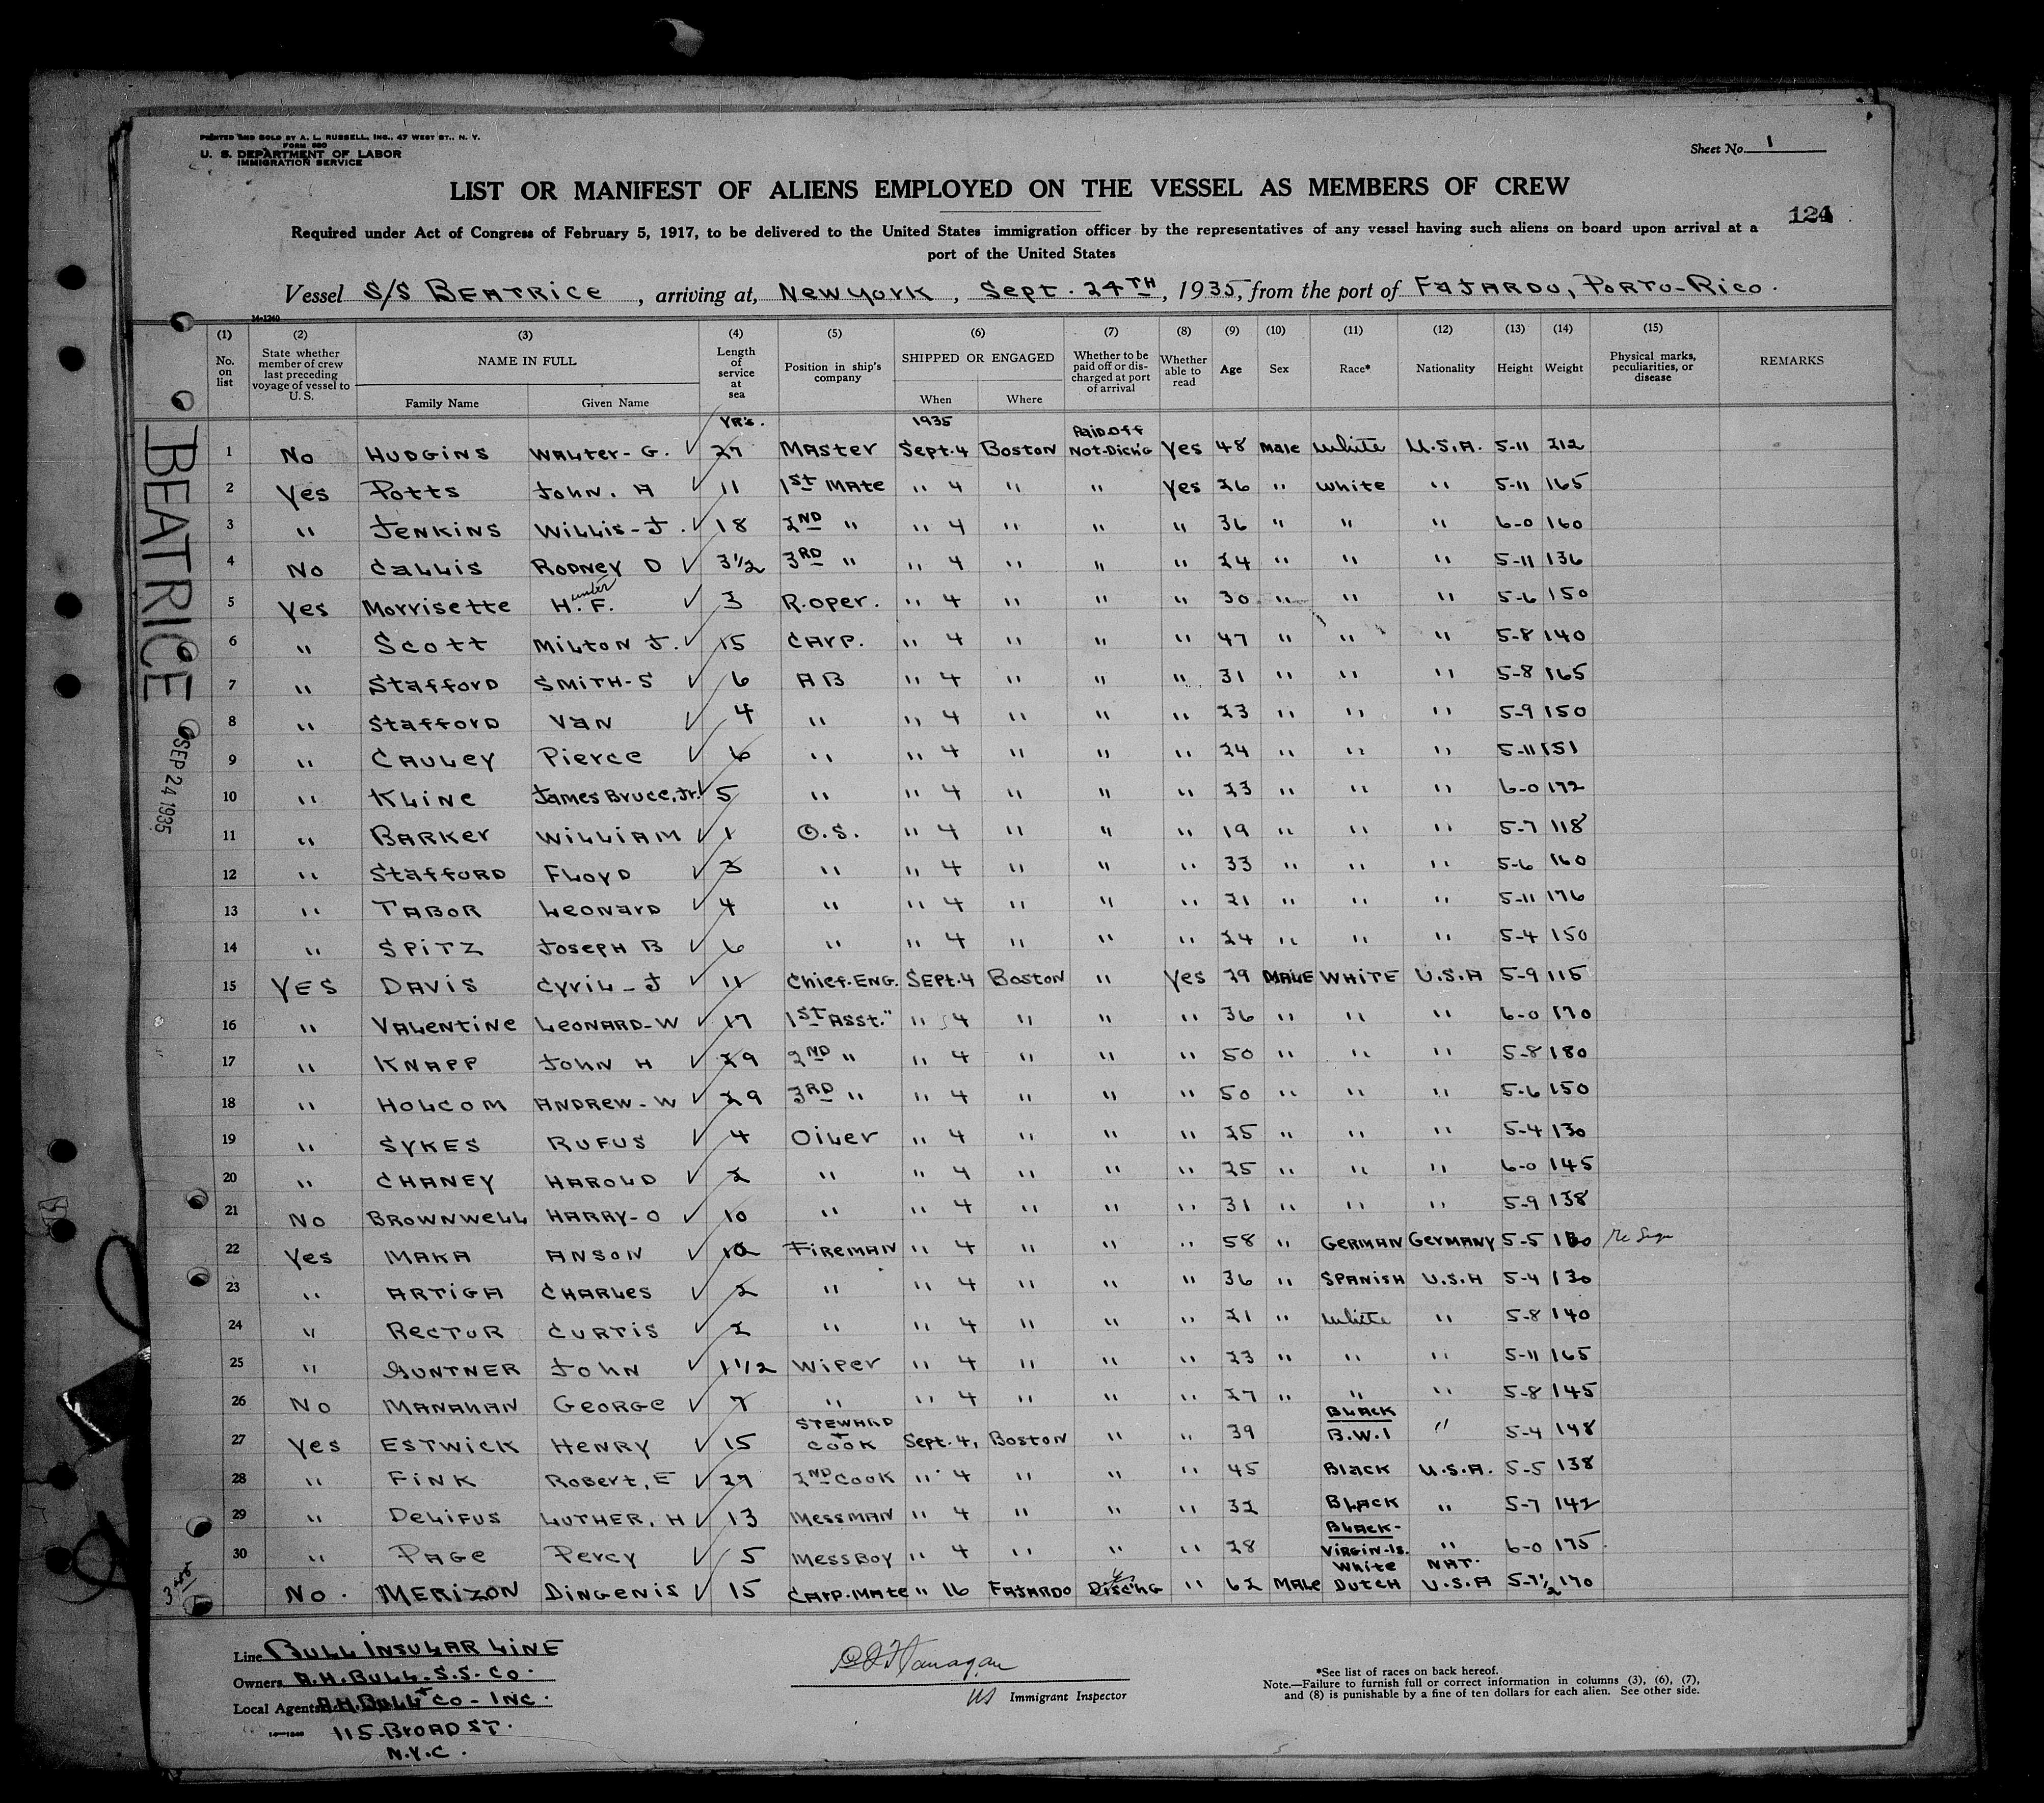 PRINTED AND SOLD BY A. L. RUSSELL, INC., 47 WEST ST., N. Y.
FORM 680
U. S. DEPARTMENT OF LABOR
IMMIGRATION SERVICE
Sheet No. 1
LIST OR MANIFEST OF ALIENS EMPLOYED ON THE VESSEL AS MEMBERS OF CREW
124
Required under Act of Congress of February 5, 1917, to be delivered to the United States immigration officer by the representatives of any vessel having such aliens on board upon arrival at a
port of the United States
Vessel S/S BEATRICE, arriving at, New York, Sept. 24TH, 1935, from the port of FAJARDO, PORTO-RICO.
14-1240
(1) No. on list (2) State whether member of crew last preceding voyage of vessel to U. S. (3) NAME IN FULL Family Name Given Name (4) Length of service at sea (5) Position in ship's company (6) SHIPPED OR ENGAGED When Where (7) Whether to be paid off or discharged at port of arrival (8) Whether able to read (9) Age (10) Sex (11) Race* (12) Nationality (13) Height (14) Weight (15) Physical marks, peculiarities, or disease REMARKS
YR's. 1935 Paid off
1 No HUDGINS WALTER-G. ✓ 27 MASTER Sept.4 Boston Not-Disch'G Yes 48 Male White U.S.A. 5-11 212
2 Yes Potts John. A ✓ 11 1ST MATE " 4 " " Yes 26 " White " 5-11 165
3 " JENKINS WILLIS-J. ✓ 18 2ND " " 4 " " " 36 " " " 6-0 160
4 No CALLIS RODNEY D ✓ 3½ 3RD " " 4 " " " 24 " " " 5-11 136
5 Yes Morrisette H.unter F. ✓ 3 R.oper. " 4 " " " 30 " " " 5-6 150
6 " Scott MILTON J. ✓ 15 CARP. " 4 " " " 47 " " " 5-8 140
7 " STAFFORD SMITH-S ✓ 6 AB " 4 " " " 31 " " " 5-8 165
8 " STAFFORD VAN ✓ 4 " " 4 " " " 23 " " " 5-9 150
9 " CAULEY Pierce ✓ 6 " " 4 " " " 24 " " " 5-11 151
10 " KLINE James Bruce, Jr. ✓ 5 " " 4 " " " 23 " " " 6-0 172
11 " BARKER WILLIAM ✓ 1 O.S. " 4 " " " 19 " " " 5-7 118
12 " STAFFORD FLOYD ✓ 3 " " 4 " " " 33 " " " 5-6 160
13 " TABOR LEONARD ✓ 4 " " 4 " " " 21 " " " 5-11 176
14 " SPITZ JOSEPH B ✓ 6 " " 4 " " " 24 " " " 5-4 150
15 YES DAVIS CYRIL-J ✓ 11 Chief.ENG. SEPT.4 Boston " Yes 29 MALE WHITE U.S.A 5-9 115
16 " VALENTINE LEONARD-W ✓ 17 1ST ASST." " 4 " " " 36 " " " 6-0 170
17 " KNAPP JOHN H ✓ 29 2ND " " 4 " " " 50 " " " 5-8 180
18 " HOLCOM ANDREW-W ✓ 29 3RD " " 4 " " " 50 " " " 5-6 150
19 " SYKES RUFUS ✓ 4 OILER " 4 " " " 25 " " " 5-4 130
20 " CHANEY HAROLD ✓ 2 " " 4 " " " 25 " " " 6-0 145
21 No BROWNWELL HARRY-O ✓ 10 " " 4 " " " 31 " " " 5-9 138
22 Yes MAKA ANSON ✓ 10 FIREMAN " 4 " " " 58 " GERMAN GERMANY 5-5
23 " ARTIGA CHARLES ✓ 2 " " 4 " " " 36 " SPANISH U.S.A 5-4 130
24 " RECTOR CURTIS ✓ 2 " " 4 " " " 21 " White " 5-8 140
25 " GUNTNER JOHN ✓ 1 1/2 WIPER " 4 " " " 23 " " " 5-11 165
26 No MANAHAN GEORGE ✓ 7 " " 4 " " " 27 " " " 5-8 145
27 Yes ESTWICK HENRY ✓ 15 STEWARD + COOK Sept.4, Boston " " 39 BLACK B.W.I " 5-4 148
28 " FINK ROBERT, E ✓ 27 2ND COOK " 4 " " " 45 Black U.S.A. 5-5 138
29 " DELIFUS LUTHER, H ✓ 13 MESSMAN " 4 " " " 32 BLACK " 5-7 142
30 " PAGE Percy ✓ 5 MESSBOY " 4 " " " 28 BLACK- VIRGIN-IS. " 6-0 175
No. MERIZON DINGENIS ✓ 15 CARP.MATE " 16 FAJARDO Disch'G " 62 MALE White DUTCH NAT. U.S.A 5-7½ 170
BEATRICE
SEP 24 1935
Line BULL INSULAR LINE
Owners A.H. BULL. S.S. CO.
Local Agents A.H. BULL + CO - INC.
115-BROAD ST.
N.Y.C.
US Immigrant Inspector
*See list of races on back hereof.
Note.—Failure to furnish full or correct information in columns (3), (6), (7),
and (8) is punishable by a fine of ten dollars for each alien. See other side.